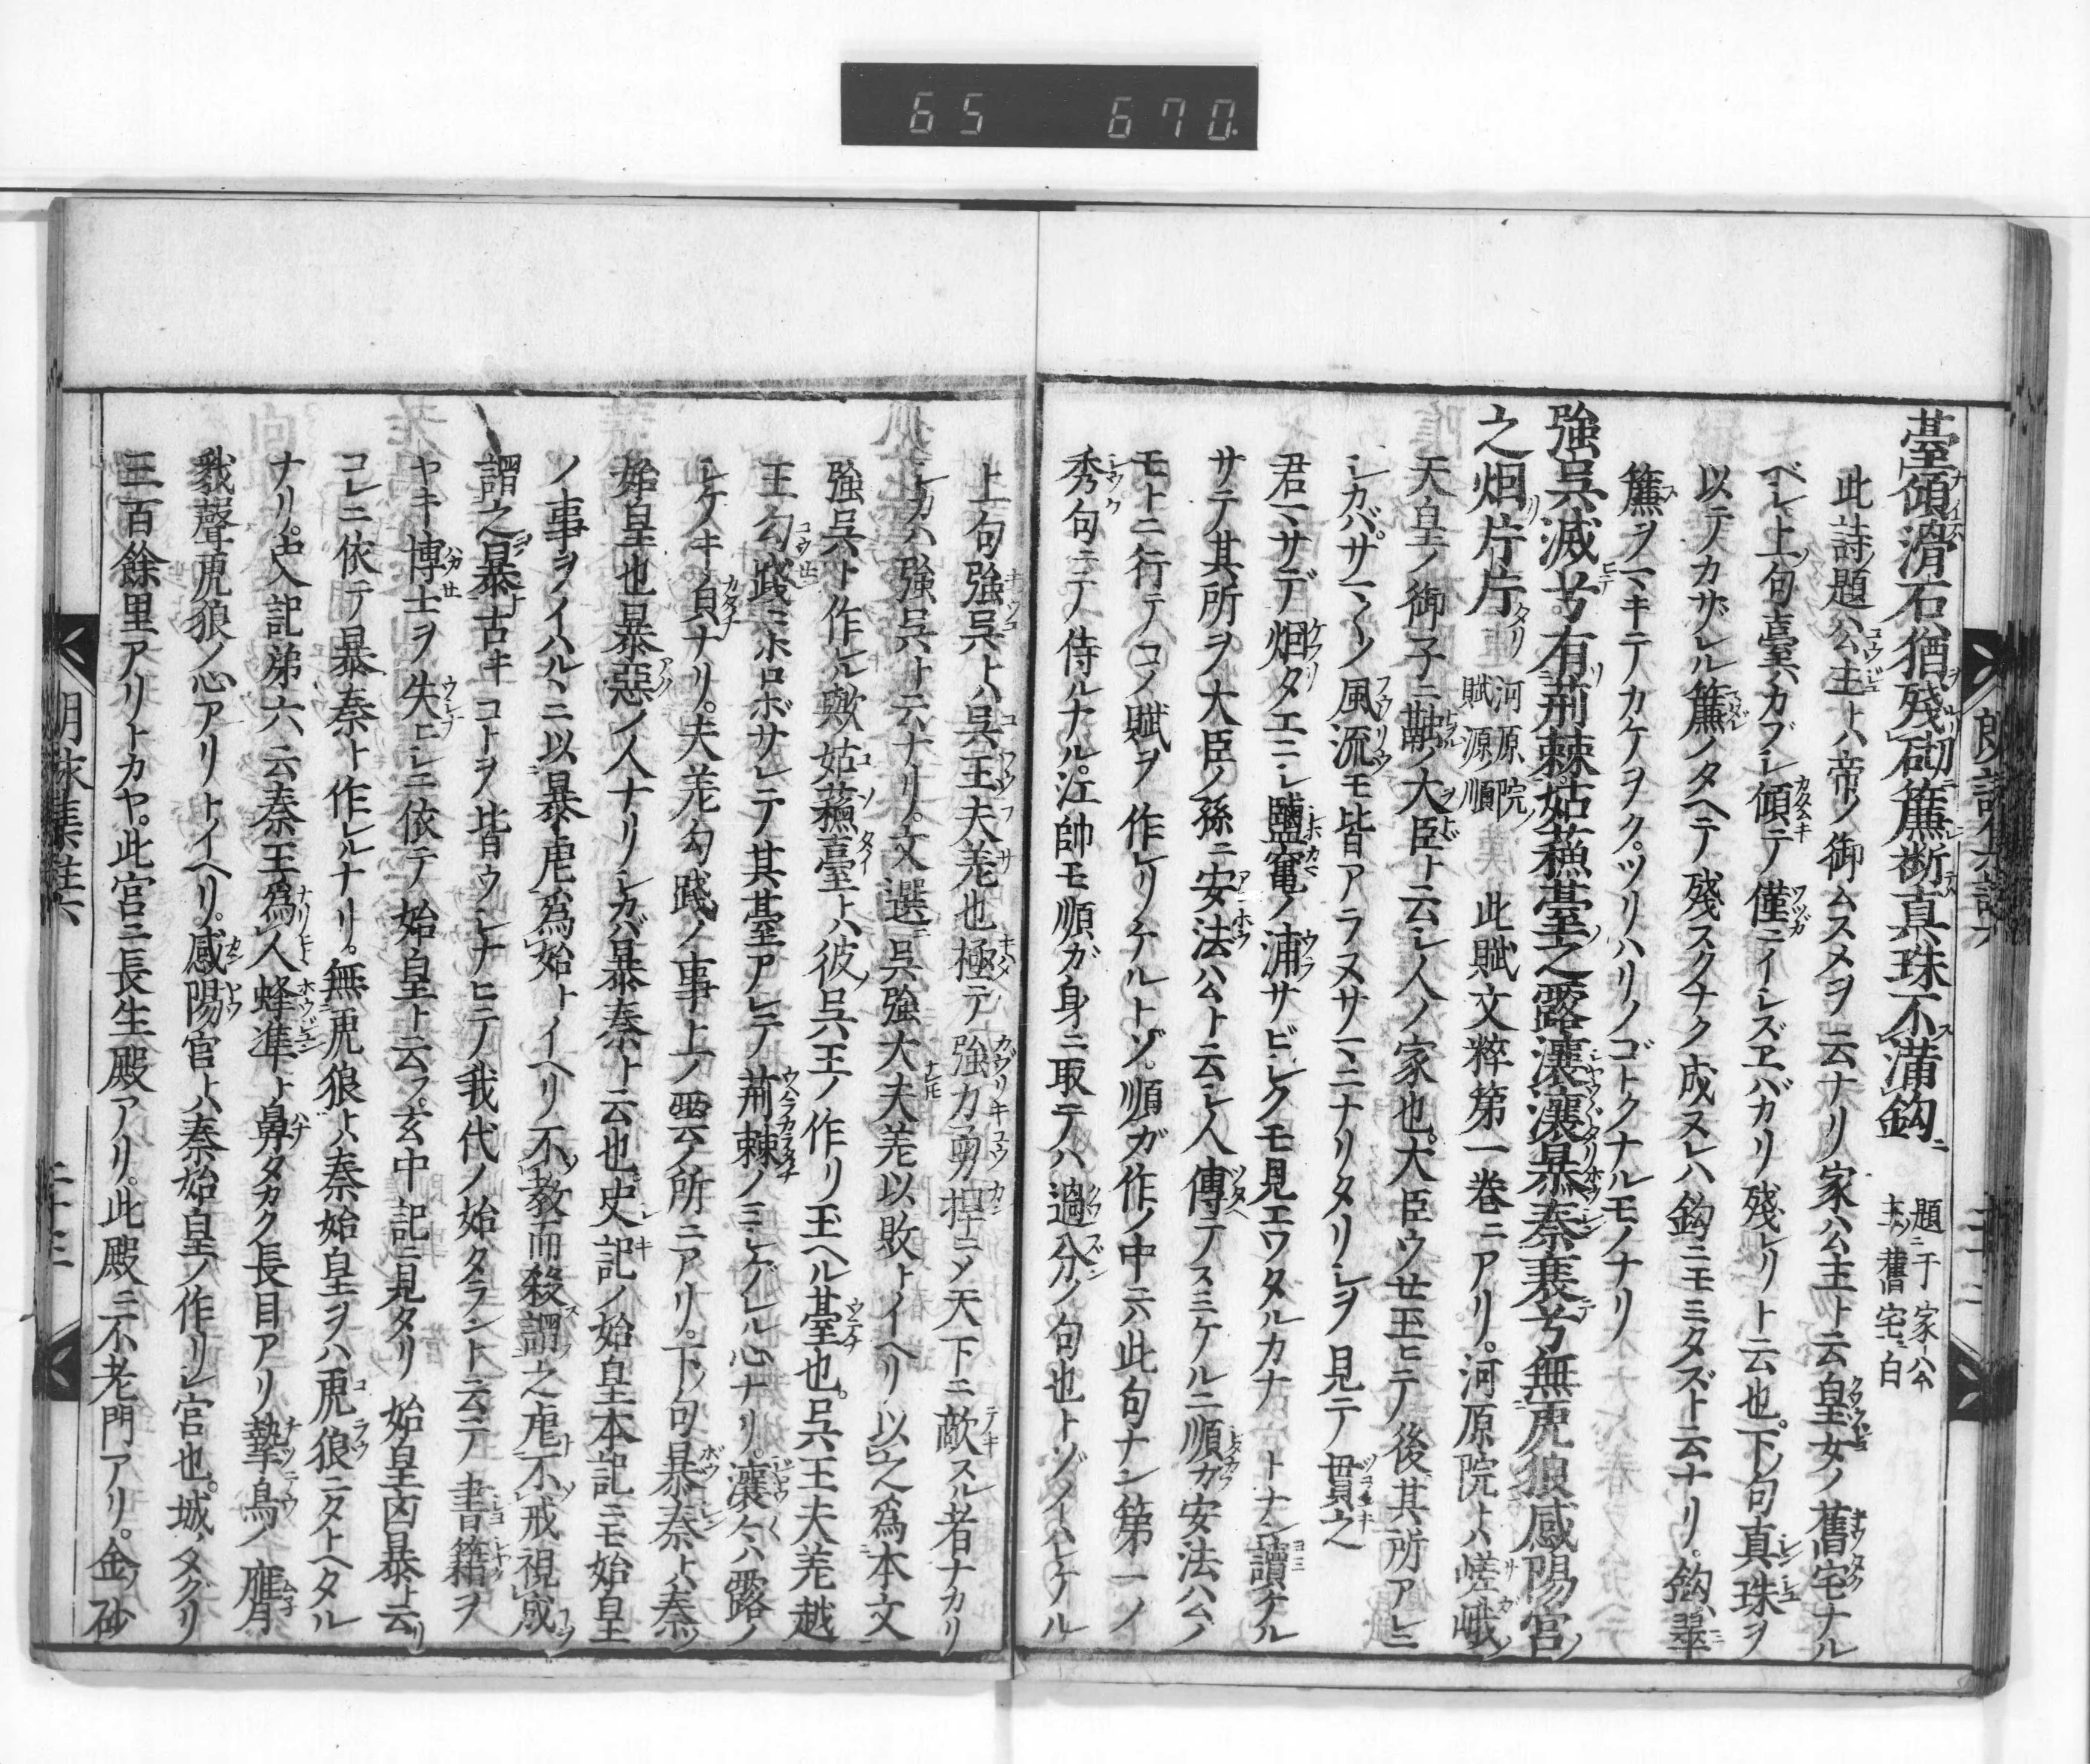 65 670.
臺傾滑石猶殘砌簾斷真珠不滿鈎
題于家公
主舊宅白
此詩ノ題ハ公主トハ帝ノ御ムスメヲ云ナリ家ハ公主ト云皇女ノ舊宅ナル
ベレ上ノ句臺ハカブレ傾テ僅ニイレズヱバカリ殘レリト云也下ノ句真珠ヲ
以テカザレル簾ノタヘテ殘スクナク成ヌレハ鈎ニモミタズト云ナリ。鈎ハ翠
簾ヲマキテカケヲク。ツリハリノゴトクナルモノナリ
強呉滅兮有荊棘姑蘇臺之露瀼瀼暴秦衰兮無虎狼咸陽宮
之烟片片
河原院
賦源順
此賦文粹第一巻ニアリ。河原院ト八嵯峨ノ
天皇ノ御子ニ融ノ大臣ト云レ人ノ家也大臣ウセ玉ヒテノ後其所アレニ
レカバサマ〱ノ風流モ皆アラヌサマニナリタリレヲ見テ貫之
君マサデ烟タエニレ鹽竃ノ浦サビレクモ見エワタルカナ トナン讀ケル
サテ其所ヲ大臣ノ孫ニ安法ハムト云レ人傳テスミケルニ順ガ安法ハムノ
モトニ行テコノ賦ヲ作レリケルトゾ。順ガ作ノ中ニ六此句ナン第一ノ
秀句ニテ侍ルナル江帥モ順ガ身ニ取テハ過分ノ句也トゾイハレケル
朗詠集註六
上句強呉トハ呉王夫差也極テ強カ勇捍ニメ天下ニ敵スル者ナカリ
レカハ強呉ト云ナリ。文選ニ呉強大夫差以敗トイヘリ以之為本文
強呉ト作ル歟姑蘇臺トハ彼ノ呉王ノ作リ玉ヘル臺也。呉王夫差越
王勾踐ニホロボサレテ其臺アレテ荊棘ノミレゲレル心ナリ。瀼々ハ露ノ
レゲキノ皃ナリ。夫差勾踐ノ事上ノ雲ノ所ニアリ。下句暴秦トハ秦ノ
始皇也暴惡ノ人ナリレカバ暴秦ト云也史記ノ始皇本記ニモ始皇
ノ事ヲイハルニ以暴虐為始トイヘリ不教而殺謂之虐不戒視成
謂之暴古キコトヲ皆ウレナヒテ我代ノ始タラント云テ書籍ヲ
ヤキ博士ヲ失ヒレニ依テ始皇ト云フ。玄中記ニ見タリ始皇凶暴ト云リ
コレニ依テ暴秦ト作レルナリ。無虎狼トハ秦始皇ヲハ虎狼ニタトヘタル
ナリ。史記第六云秦王為人蜂準ト鼻タカク長目アリ摯鳥ノ膺
豺聲虎狼ノ心アリトイヘリ。咸陽宮トハ秦始皇ノ作リレ宮也。城ノメグリ
三百餘里アリトカヤ。此宮ニ長生殿アリ。此殿ニ不老門アリ。金ノ砂
朗詠集註六
二十三